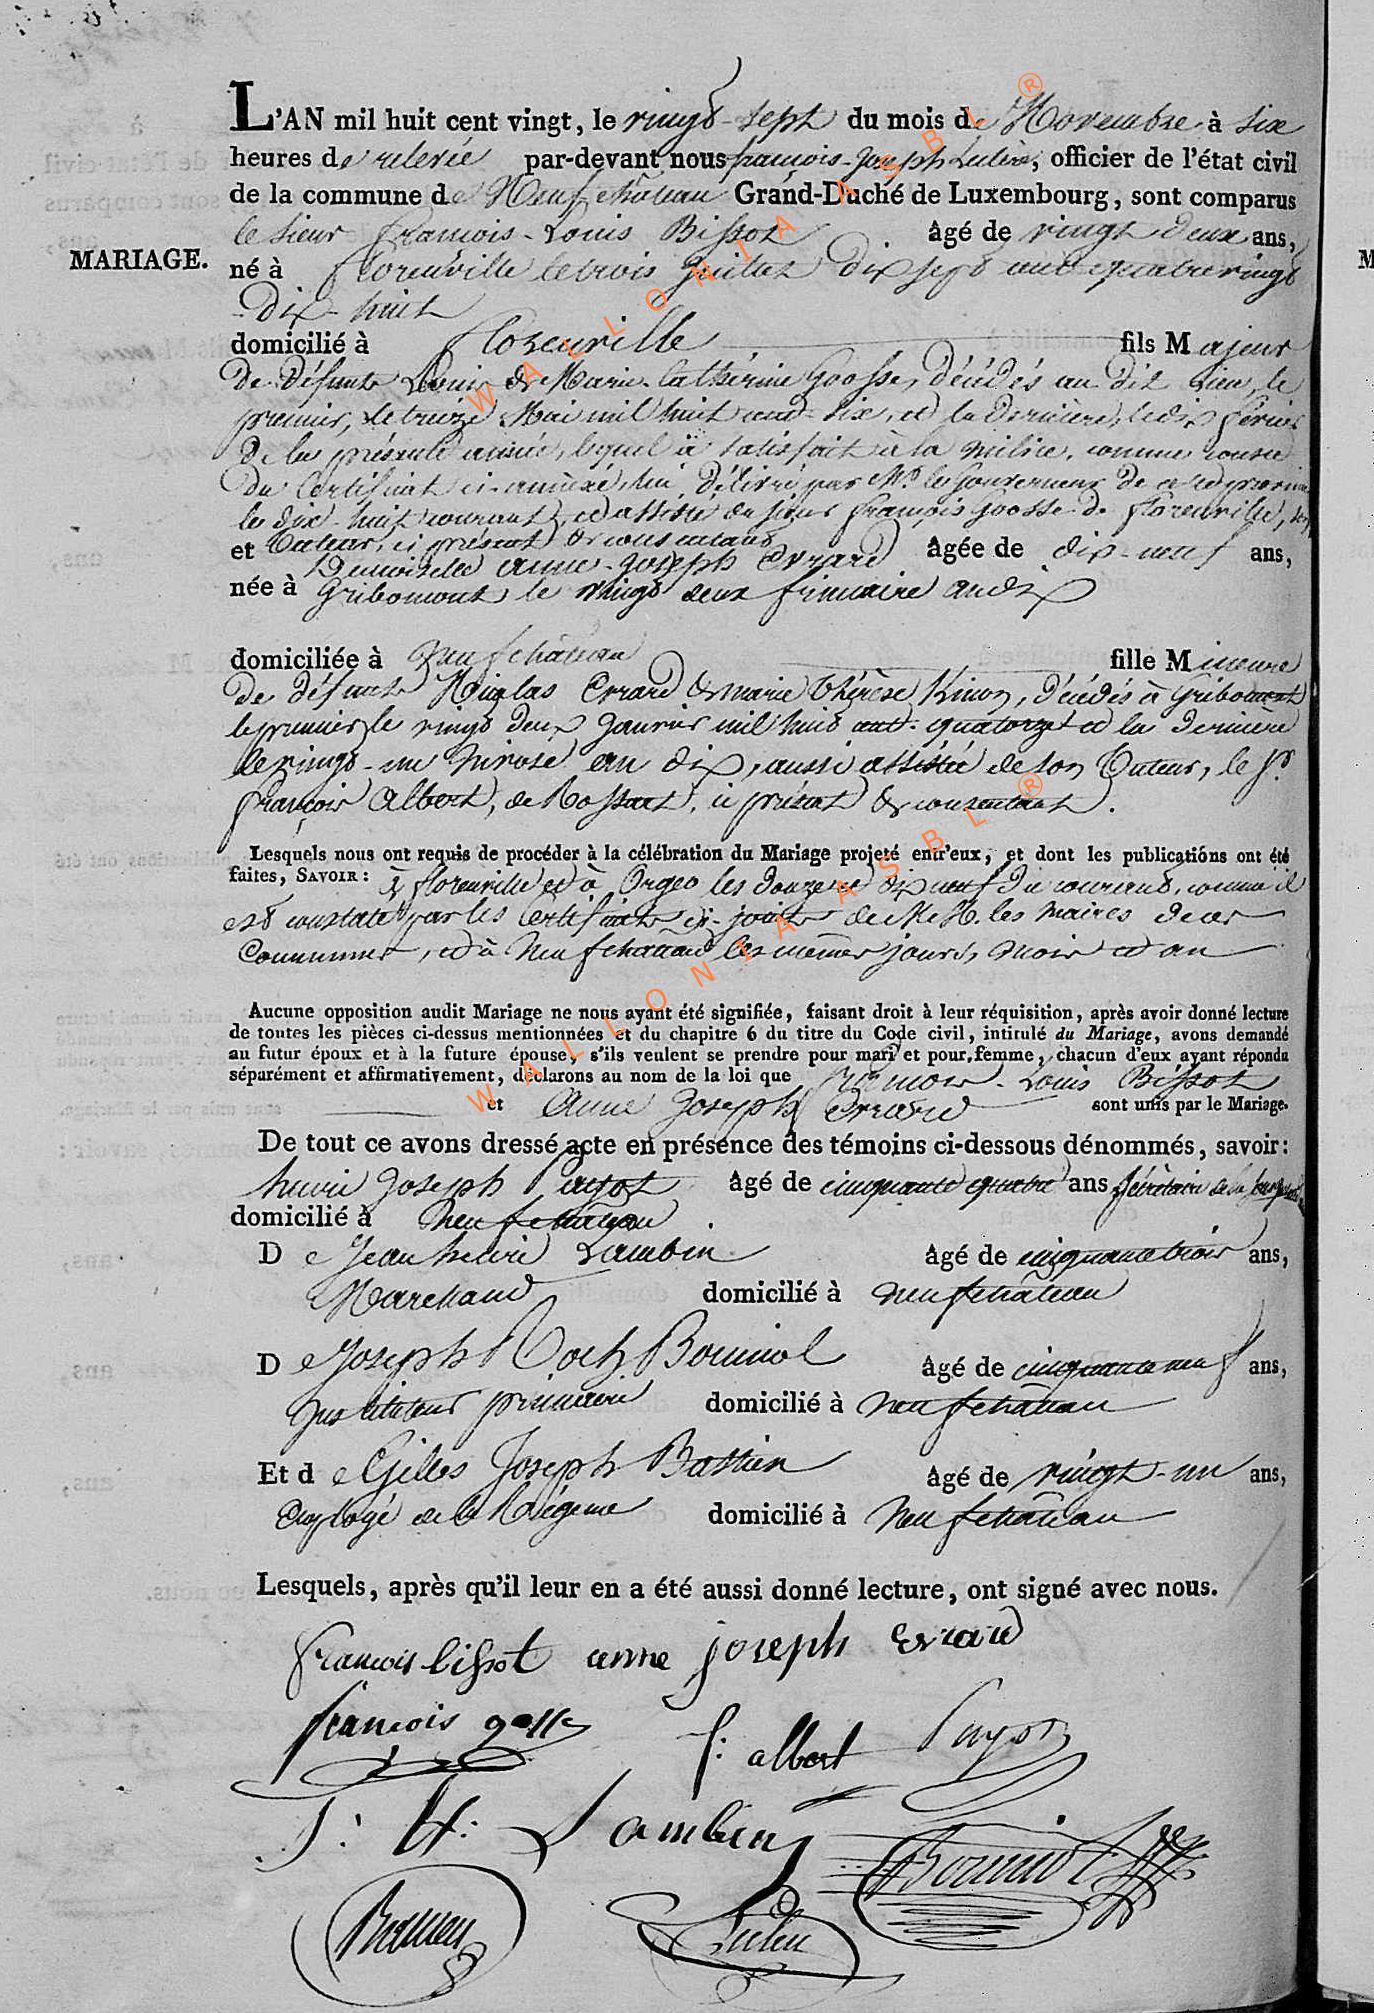 L'AN mil huit cent vingt, le vingt-sept du mois de Novembre à six
heures de relevée par-devant nous françois-Joseph, officier de l'état civil
de la commune de Neufchâteau Grand-Duché de Luxembourg, sont comparus
le sieur françois-Louis Bissot âgé de vingt deux ans,
MARIAGE.
né à florenville le trois Juillet dix sept cent quatre vingt
-dix-huit
domicilié à florenville fils Majeur
De Défunts Louis & Marie-Cathérine Goosse, Décédés au dit Lieu, le
premier, le treize Mai mil huit cent six, et la Dernière, le dix février
De la présente année, lequel a satisfait à la milice, comme conste
Du Certificat ci-annexé, lui Délivré par Mr. le Gouverneur De cette province
le dix-huit courant, et assisté du sieur françois Goosse De florenville, son
et Tuteur, ci présent & consentant
Demoiselle anne-Joseph Errard âgée de dix-neuf ans,
née à Gribomont le vingt deux frimaire an dix
domiciliée à Neufchâteau fille Mineure
de défunts Nicolas Errard & marie Thérèse Kinon, Décédés à Gribomont
le premier le vingt deux Janvier mil huit cent quatorze et la dernière
le vingt-un Nivose an dix, aussi assistée de son Tuteur, le Sr
françois Albert, de Rossart, ci présent & consentant.
Lesquels nous ont requis de procéder à la célébration du Mariage projeté entr'eux, et dont les publications ont été
faites, SAVOIR: à florenville et à Orgeo les douze et dix neuf du courant, comme il
est constaté par les Certificats ci-joints de M.M. les maires de ces
Communes, et à Neufchâteau les mêmes jours, mois et an
Aucune opposition audit Mariage ne nous ayant été signifiée, faisant droit à leur réquisition, après avoir donné lecture
de toutes les pièces ci-dessus mentionnées et du chapitre 6 du titre du Code civil, intitulé du Mariage, avons demandé
au futur époux et à la future épouse, s'ils veulent se prendre pour mari et pour femme, chacun d'eux ayant répondu
séparément et affirmativement, déclarons au nom de la loi que françois-Louis Bissot
et Anne Joseph Errard sont unis par le Mariage.
De tout ce avons dressé acte en présence des témoins ci-dessous dénommés, savoir:
henri Joseph Payot âgé de cinquante quatre ans, Sécrétaire de la
domicilié à Neufchâteau.
De Jean henri Lambin âgé de cinquante trois ans,
Marchand domicilié à Neufchâteau
De Joseph Roch Bouniol âgé de cinquante neuf ans,
Instituteur primaire domicilié à Neufchâteau
Et de Gilles Joseph Bastien âgé de vingt-un ans,
Employé de la Régence domicilié à Neufchâteau
Lesquels, après qu'il leur en a été aussi donné lecture, ont signé avec nous.
francois bissot anne joseph errard
francois gosse f: albert Payot
J: H: Lambin Bouniol
Bastien
WALLONIA ASBL ®
WALLONIA ASBL ®
M